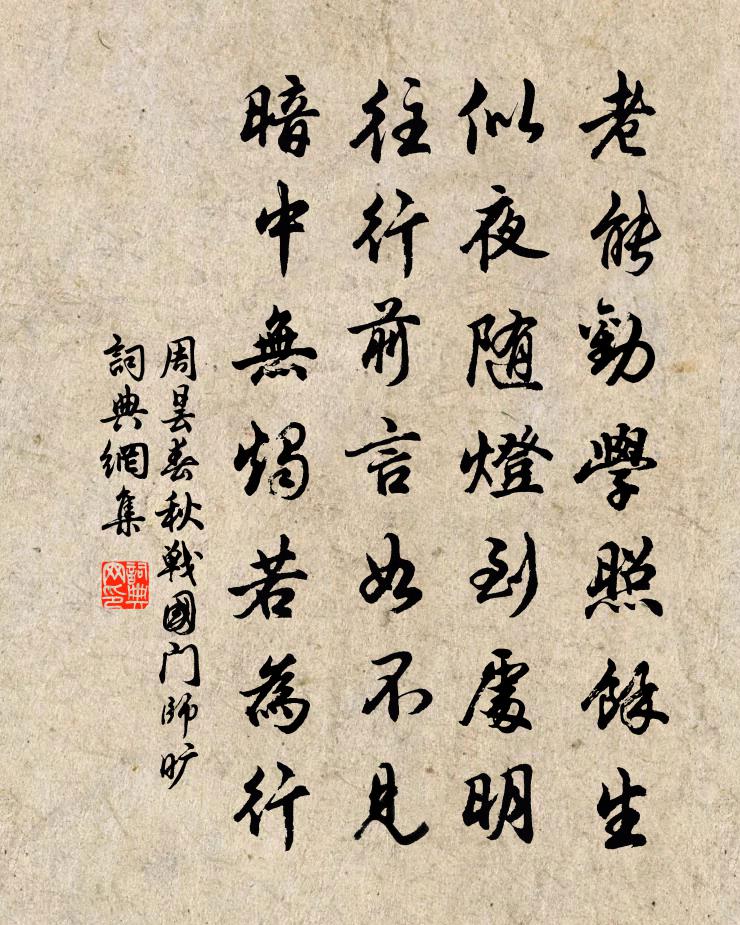 老能勸學照餘生
似夜隨燈到處明
往行前言如不見
暗中無燭若為行
周曇春秋戰國門師旷
詞典網集
詞典網印